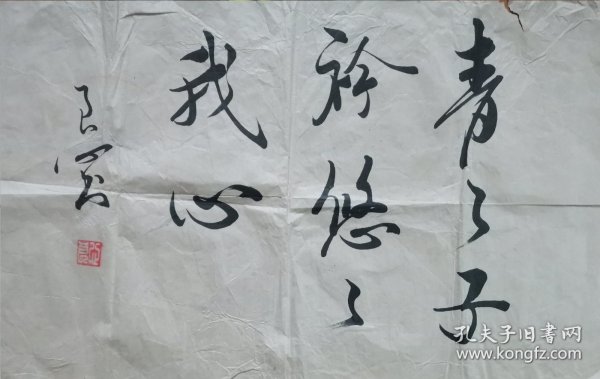 青々子
衿悠々
我心
良宽
孔夫子旧書网
www.kongfz.com